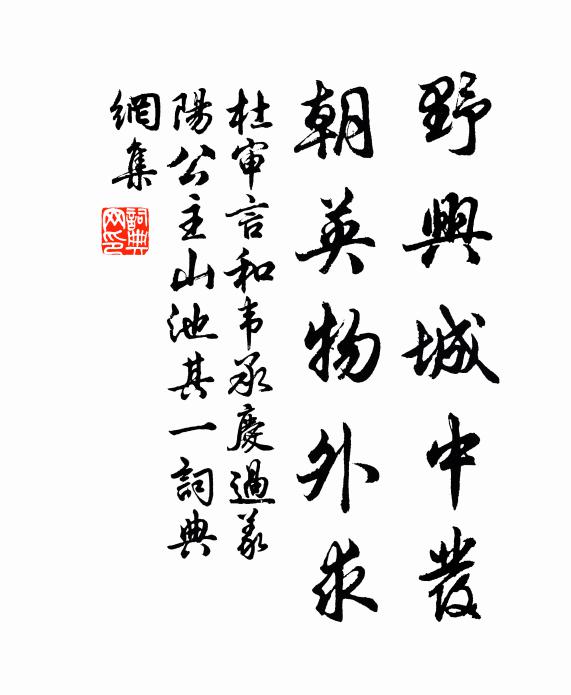 野興城中發
朝英物外求
杜审言和韦承慶過義
陽公主山池其一詞典
網集
詞典网印